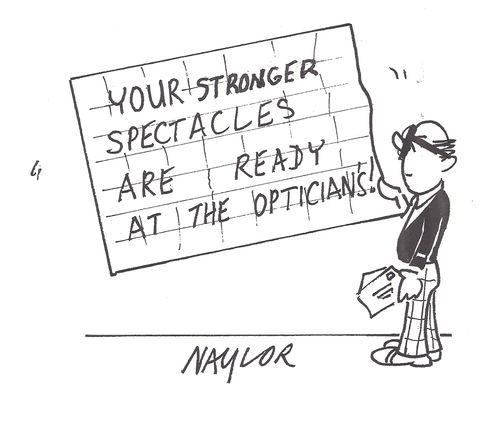 YOUR STRONGER
SPECTACLES
ARE READY
AT THE OPTICIANS!
NAYLOR